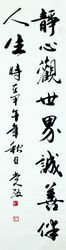 靜心觀世界誠善伴
人生 時在甲午年秋日